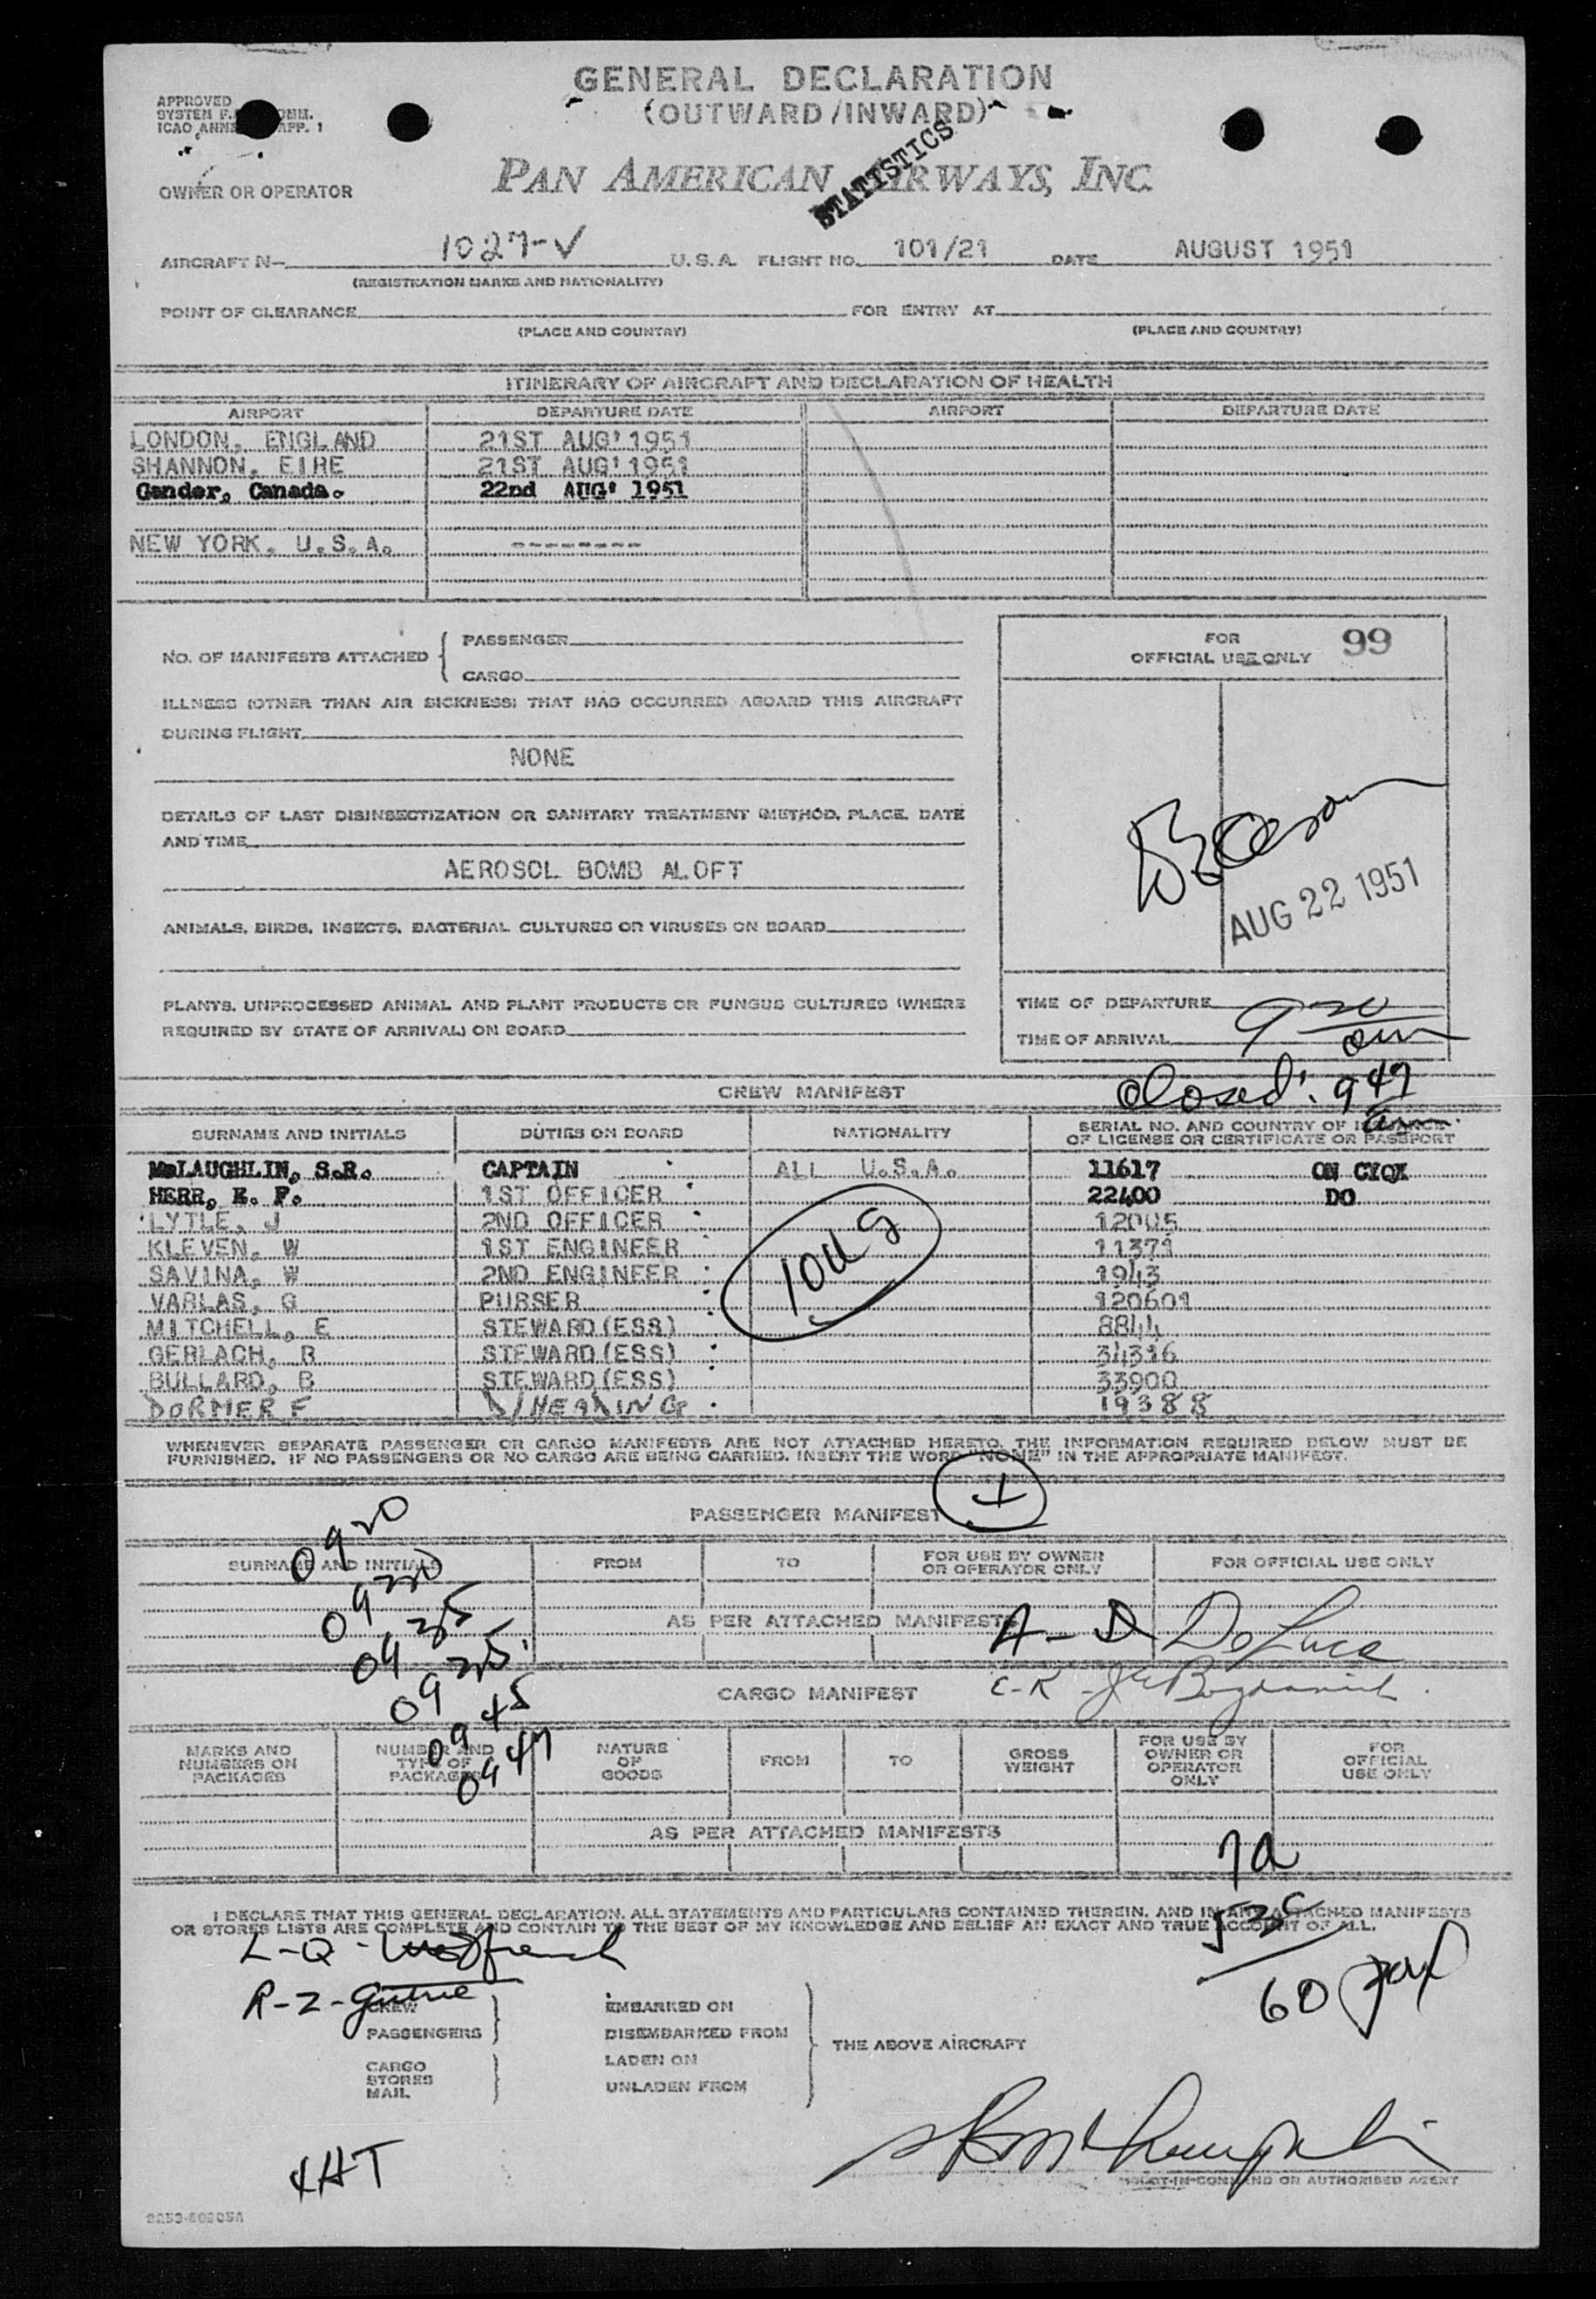 GENERAL DECLARATION
(OUTWARD/INWARD)
APPROVED
SYSTEM
ICAO APP. 1
STATISTICS
OWNER OR OPERATOR PAN AMERICAN AIRWAYS, INC.
AIRCRAFT N- 1027-V U.S.A. FLIGHT NO. 101/21 DATE AUGUST 1951
(REGISTRATION MARKS AND NATIONALITY)
POINT OF CLEARANCE FOR ENTRY AT
(PLACE AND COUNTRY) (PLACE AND COUNTRY)
ITINERARY OF AIRCRAFT AND DECLARATION OF HEALTH
AIRPORT DEPARTURE DATE AIRPORT DEPARTURE DATE
LONDON, ENGLAND 21ST AUG' 1951
SHANNON, EIRE 21ST AUG' 1951
Gander, Canada. 22nd AUG' 1951
NEW YORK, U.S.A. --------
NO. OF MANIFESTS ATTACHED { PASSENGER
CARGO
FOR
OFFICIAL USE ONLY 99
ILLNESS (OTHER THAN AIR SICKNESS) THAT HAS OCCURRED ABOARD THIS AIRCRAFT
DURING FLIGHT
NONE
DETAILS OF LAST DISINSECTIZATION OR SANITARY TREATMENT (METHOD, PLACE, DATE
AND TIME
AEROSOL BOMB ALOFT
AUG 22 1951
ANIMALS, BIRDS, INSECTS, BACTERIAL CULTURES OR VIRUSES ON BOARD
PLANTS, UNPROCESSED ANIMAL AND PLANT PRODUCTS OR FUNGUS CULTURES (WHERE
REQUIRED BY STATE OF ARRIVAL) ON BOARD
TIME OF DEPARTURE
TIME OF ARRIVAL 9 20 am
Closed: 9 47 am
CREW MANIFEST
SURNAME AND INITIALS DUTIES ON BOARD NATIONALITY SERIAL NO. AND COUNTRY OF ISSUANCE
OF LICENSE OR CERTIFICATE OR PASSPORT
McLAUGHLIN, S.R. CAPTAIN ALL U.S.A. 11617 ON CYQX
HERR, E. F. 1ST OFFICER 22400 DO
LYTLE, J 2ND OFFICER 12005
KLEVEN, W 1ST ENGINEER 11371
SAVINA, W 2ND ENGINEER 1943
VARLAS, G PURSER 120601
MITCHELL, E STEWARD(ESS) 8844
GERLACH, B STEWARD(ESS) 34316
BULLARD, B STEWARD(ESS) 33900
DORMER F 19388
WHENEVER SEPARATE PASSENGER OR CARGO MANIFESTS ARE NOT ATTACHED HERETO, THE INFORMATION REQUIRED BELOW MUST BE
FURNISHED. IF NO PASSENGERS OR NO CARGO ARE BEING CARRIED, INSERT THE WORD "NONE" IN THE APPROPRIATE MANIFEST.
PASSENGER MANIFEST
0920
SURNAME AND INITIALS FROM TO FOR USE BY OWNER
OR OPERATOR ONLY FOR OFFICIAL USE ONLY
AS PER ATTACHED MANIFESTS A-D De Luca
0925
CARGO MANIFEST E-K
0945
0947
MARKS AND
NUMBERS ON
PACKAGES NUMBER AND
TYPE OF
PACKAGES NATURE
OF
GOODS FROM TO GROSS
WEIGHT FOR USE BY
OWNER OR
OPERATOR
ONLY FOR
OFFICIAL
USE ONLY
AS PER ATTACHED MANIFESTS
7a
I DECLARE THAT THIS GENERAL DECLARATION, ALL STATEMENTS AND PARTICULARS CONTAINED THEREIN, AND IN ANY ATTACHED MANIFESTS
OR STORES LISTS ARE COMPLETE AND CONTAIN TO THE BEST OF MY KNOWLEDGE AND BELIEF AN EXACT AND TRUE ACCOUNT OF ALL.
L-Q-
R-Z-
60
CREW
PASSENGERS
EMBARKED ON
DISEMBARKED FROM
THE ABOVE AIRCRAFT
CARGO
STORES
MAIL
LADEN ON
UNLADEN FROM
PILOT-IN-COMMAND OR AUTHORISED AGENT